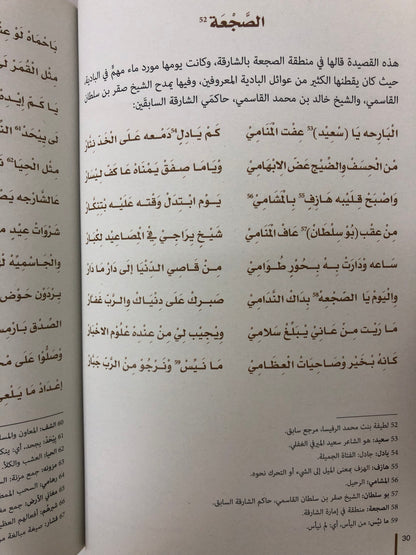 الصَّجْعة 52
هذه القصيدة قالها في منطقة الصجعة بالشارقة، وكانت يومها مورد ماء مهمٌ في البادية
حيث كان يقطنها الكثير من عوائل البادية المعروفين، وفيها يمدح الشيخ صقر بن سلطان
القاسمي، والشيخ خالد بن محمد القاسمي، حاكمَي الشارقة السابقَين:
البارحه يا (سْعيد)53 عِفت المْنامي كَمْ يادِلٍ54 دَمْعه على الخَد نثَّار
مْن الحسف والضّيج عَض الابْهامي وْيَاما صفَقْ يمْنَاهْ عَا كَف ليْسار
وَاصْبَحْ قَلِيبه هَازِفٍ55 بِالْمْشامي56 يوُم ابْتدَلْ وَقْته عَلَيْه بْتِنكَار
مْن عِقب (بُو سلطان)57 عَاف المْنامي شَيْخٍ يراجي في المْصَاعيد لكْبَار
سَاعه وْدَارت به بحُور طْوَامي مْن قَاصي الدّنْيَا إلى دَار مَا دَار
واليوُم يَا الصّجعه58 بِدَاك النّدَامي صَبرِك عَلى دنْيَاك والرَّب غَفَّار
مَا رَيت مْن عَانيْ يْبَلّغ سَلامي وِيْجيب ليْ مْن عِنْدَهْ عْلُوم الاخْبار
كَانهْ بْخَير وْصَاحيَات العظَامي مَا نَيس59 وْنَرجُو مْن الرّب جَبَّار
52 لطيفة بنت محمد الرفيسا، مرجع سابق.
53 سعيد: هو الشاعر سعيد الميرفي الغفلي.
54 يادل: جادل: الفتاة الجميلة.
55 هازف: الهزف بمعنى الميل إلى الشيء أو التحرك نحوه.
56 المشامي: الرحيل.
57 بو سلطان: الشيخ صقر بن سلطان القاسمي، حاكم الشارقة السابق.
58 الصجعة: منطقة في إمارة الشارقة.
59 ما نَيس: من اليأس، أي: لم نيأس.
30
يَاحْمَاهْ لَوْ
مِثْل القُمَرْ
يَا كَمْ
مِثْل الحْيَا
عَالشَّارجه
شَرْوَات عِيدٍ
والجَاسِمِيَّة
يَرْدُون حَوْض
الصّدْق
وْصَلُّوا عَلَى
اعْدَاد مَا
60 الشف: المعاون
61 يَيْحَدْ: يجحد، أي:
62 الحيا: العشب والكلأ.